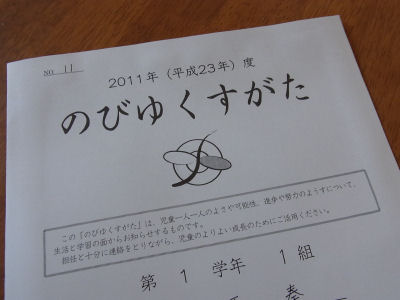 NO. 11
2011年（平成23年）度
のびゆくすがた
この「のびゆくすがた」は、児童一人一人のよさや可能性、進歩や努力のようすについて、
生活と学習の面からお知らせするものです。
担任と十分に連絡をとりながら、児童のよりよい成長のためにご活用ください。
第 1 学年 1 組